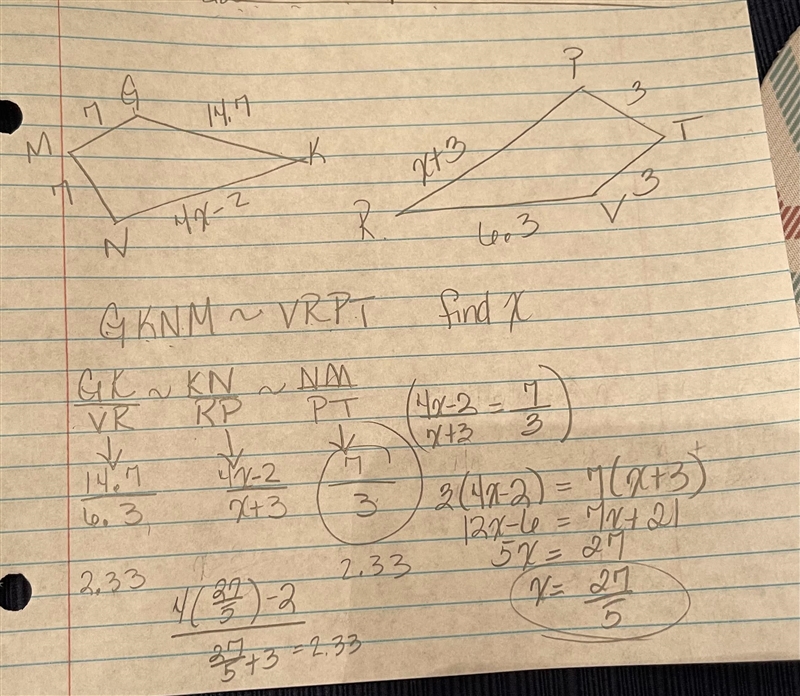 G
7
14.7
M
K
7
4x-2
N
P
3
x+3
T
R
3
V
6.3
GKNM ~ VRPT find x
GK/VR ~ KN/RP ~ NM/PT
(4x-2/x+3 = 7/3)
14.7/6.3 4x-2/x+3 7/3
3(4x-2) = 7(x+3)
12x-6 = 7x+21
5x = 27
x = 27/5
2.33 2.33
4(27/5)-2 / 27/5+3 = 2.33